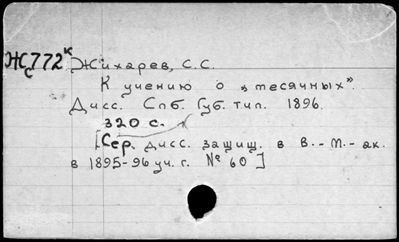 ЖС772к Жихарев, С.С.
К учению о „месячных".
Дисс. Спб. Губ. тип. 1896.
320 с.
[Сер. дисс. защищ. в В.-М.-ак.
в 1895-96 уч. г. № 60]